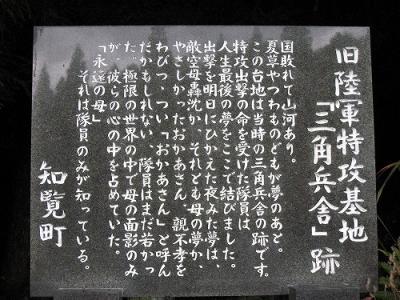 旧陸軍特攻基地
「三角兵舎」跡
国敗れて山河あり。
夏草やつわものどもが夢のあと。
この台地は当時の三角兵舎の跡です。
特攻出撃の命を受けた隊員は
人生最後の夢をここで結びました。
出撃を明日にひかえた夜みた夢は、
敵空母轟沈か、それとも母の夢か、
やさしかったおかあさん 親不孝を
わびつつ、つい「おかあさん」と呼ん
だかもしれない、隊員はまだ若かっ
た。極限の世界の中で母の面影のみ
が、彼らの心の中を占めていた。
「永遠の母」
それは隊員のみが知っている。
知覧町